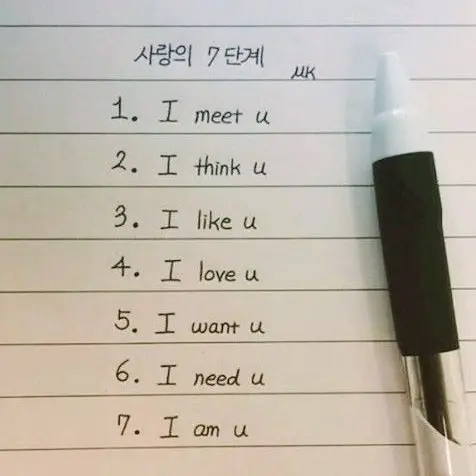 사랑의 7단계
µK
1. I meet u
2. I think u
3. I like u
4. I love u
5. I want u
6. I need u
7. I am u